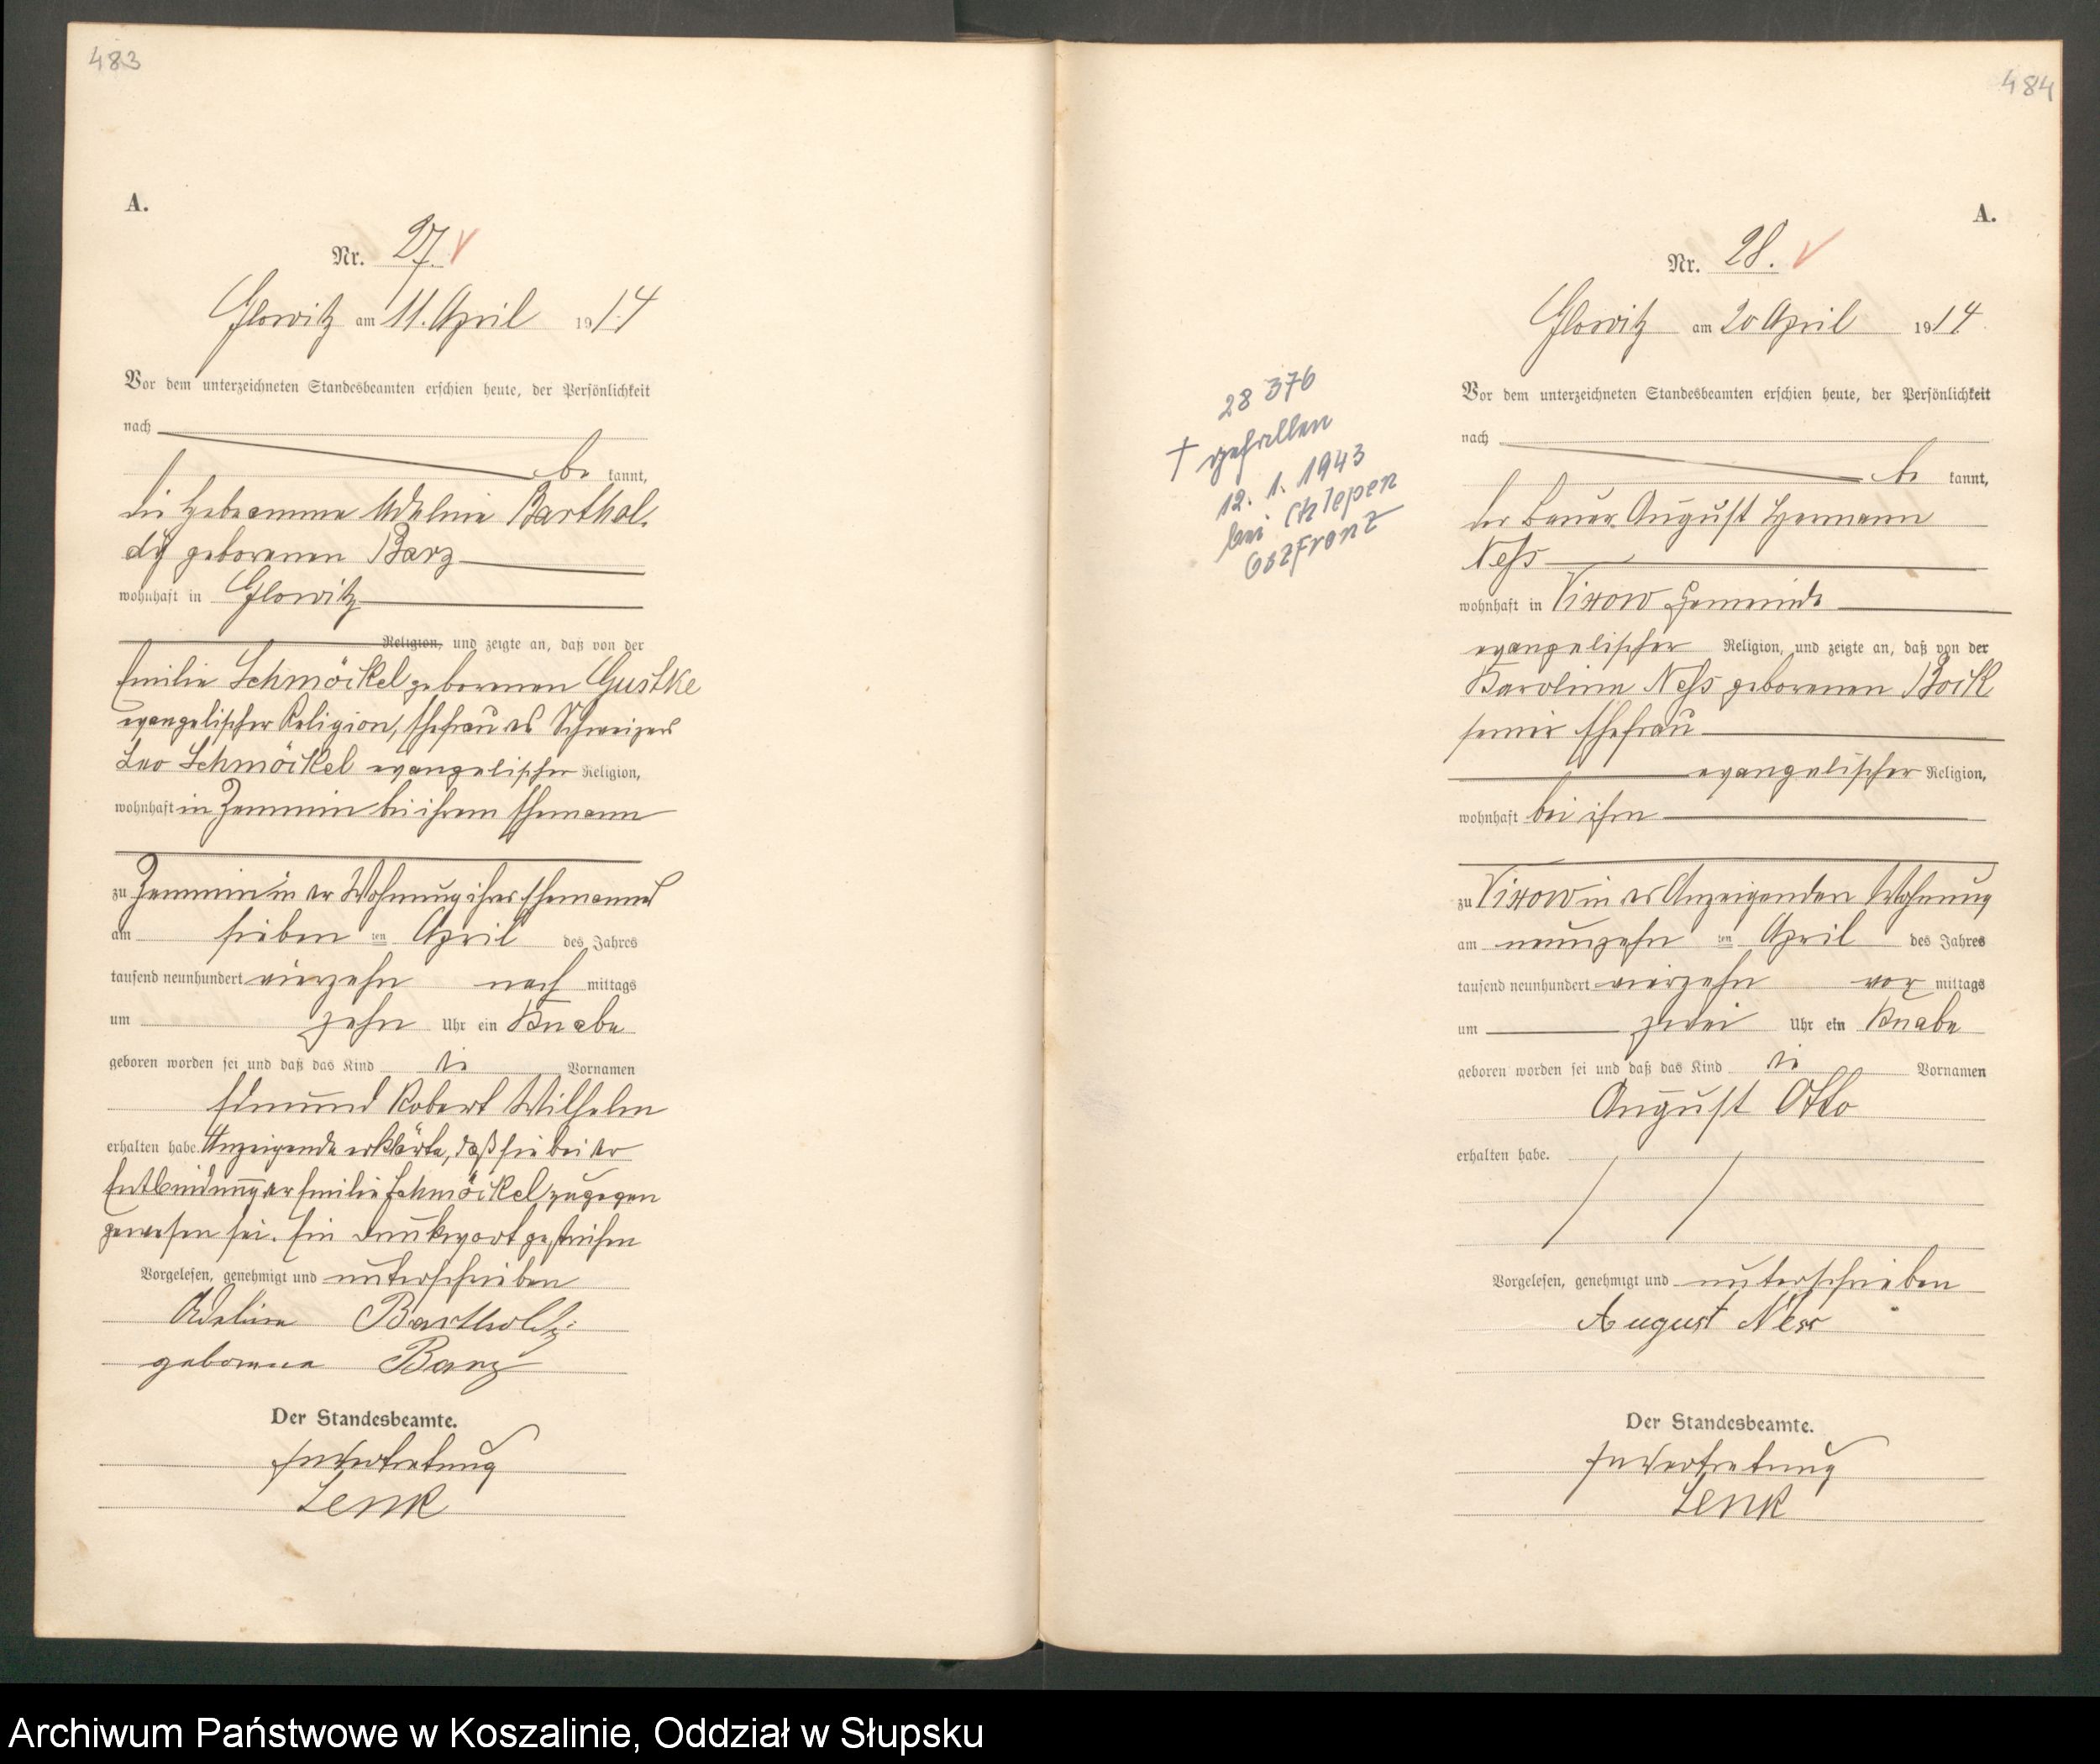 483
A.
Nr. 27.
Glowitz am 11. April 1914
Vor dem unterzeichneten Standesbeamten erschien heute, der Persönlichkeit
nach
be kannt,
die Hebeamme Adeline Barthol-
dy geborenen Barz
wohnhaft in Glowitz
Religion, und zeigte an, daß von der
Emilie Schmöckel geborenen Gustke
evangelischer Religion, Ehefrau des Schweizers
Leo Schmöckel evangelischer Religion,
wohnhaft in Zemmin bei ihrem Ehemann
zu Zemmin in der Wohnung ihres Ehemannes
am sieben ten April des Jahres
tausend neunhundert vierzehn nach mittags
um zehn Uhr ein Knabe
geboren worden sei und daß das Kind die Vornamen
Edmund Robert Wilhelm
erhalten habe. Anzeigende erklärte, daß sie bei der
Entbindung der Emilie Schmöckel zugegen
gewesen sei. Ein Druckwort gestrichen
Vorgelesen, genehmigt und unterschrieben
Adeline
geborene Barz
Der Standesbeamte.
In Vertretung
Lenk
484
A.
Nr. 28.
Glowitz am 20 April 1914
28 376
† gefallen
12. 1. 1943
bei Chlepen
Ostfront
Vor dem unterzeichneten Standesbeamten erschien heute, der Persönlichkeit
nach
be kannt,
der Bauer August Hermann
Neß
wohnhaft in Vixow Gemeinde
evangelischer Religion, und zeigte an, daß von der
Karoline Neß geborenen Bock
seiner Ehefrau
evangelischer Religion,
wohnhaft bei ihm
zu Vixow in des Anzeigenden Wohnung
am neunzehn ten April des Jahres
tausend neunhundert vierzehn vor mittags
um zwei Uhr ein Knabe
geboren worden sei und daß das Kind die Vornamen
August Otto
erhalten habe.
Vorgelesen, genehmigt und unterschrieben
August Ness
Der Standesbeamte.
In Vertretung
Lenk
Archiwum Państwowe w Koszalinie, Oddział w Słupsku